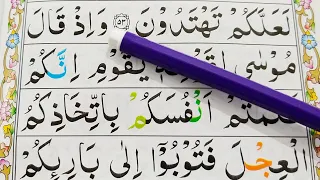 لَعَلَّكُمْ تَهْتَدُوْنَ ﴿۵۳﴾ وَاِذْ قَالَ
مُوْسٰى يٰقَوْمِ اِنَّكُمْ
ظَلَمْتُمْ اَنْفُسَكُمْ بِاتِّخَاذِكُمُ
الْعِجْلَ فَتُوْبُوْۤا اِلٰى بَارِئِكُمْ